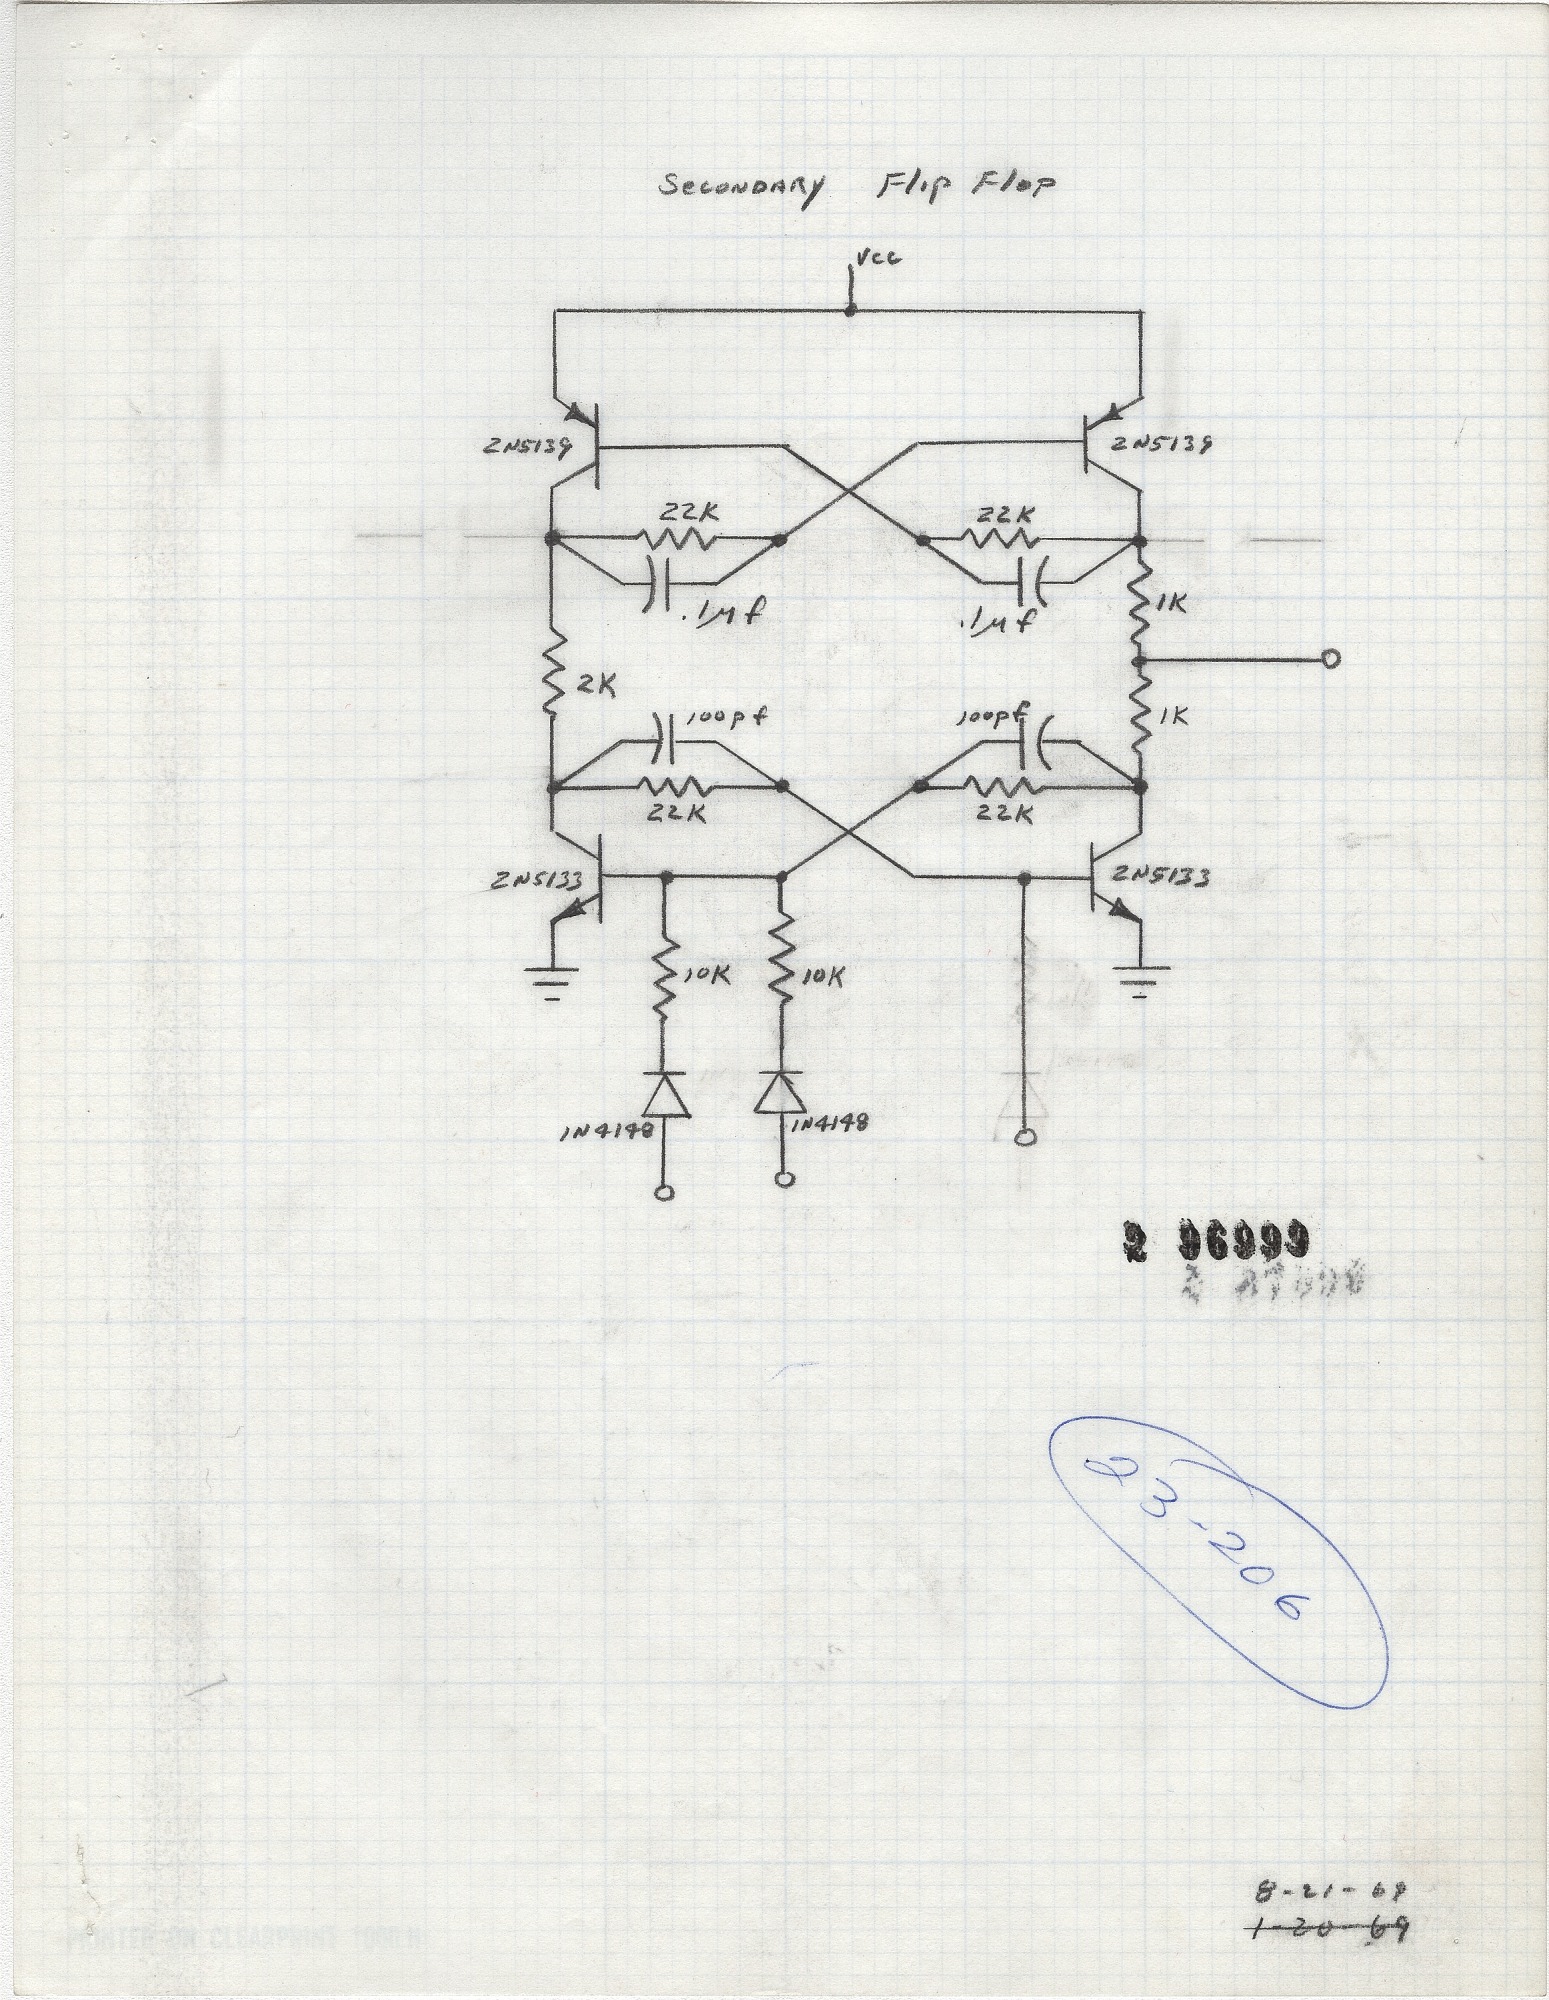 Secondary Flip Flop
Vcc
2N5139
2N5139
22K
22K
.1µf
.1µf
1K
2K
1K
100pf
100pf
22K
22K
2N5133
2N5133
10K
10K
1N4148
1N4148
2 96999
23-206
8-21-69
1-20-69